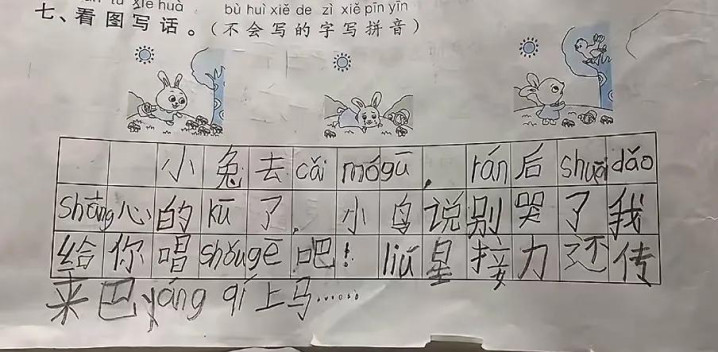 xiě huà bù huì xiě de zì xiě pīn yīn
七、看图写话。(不会写的字写拼音)
小兔去cǎi mógū，rán后shuāi dǎo
shāng心的kū了。小鸟说别哭了我
给你唱shǒugē吧！liú星接力还传
来巴yáng qí上马……